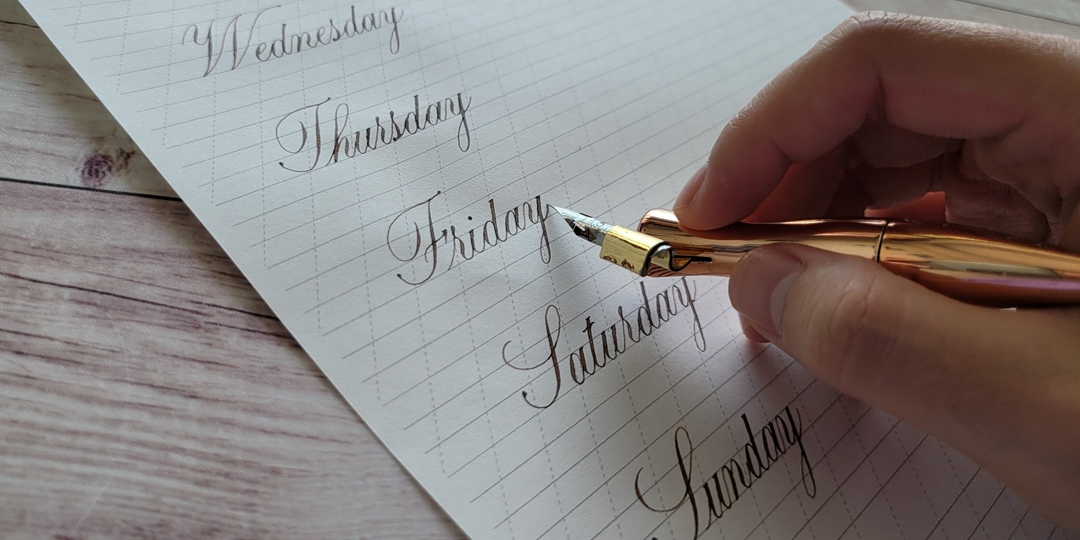 Wednesday
Thursday
Friday
Saturday
Sunday